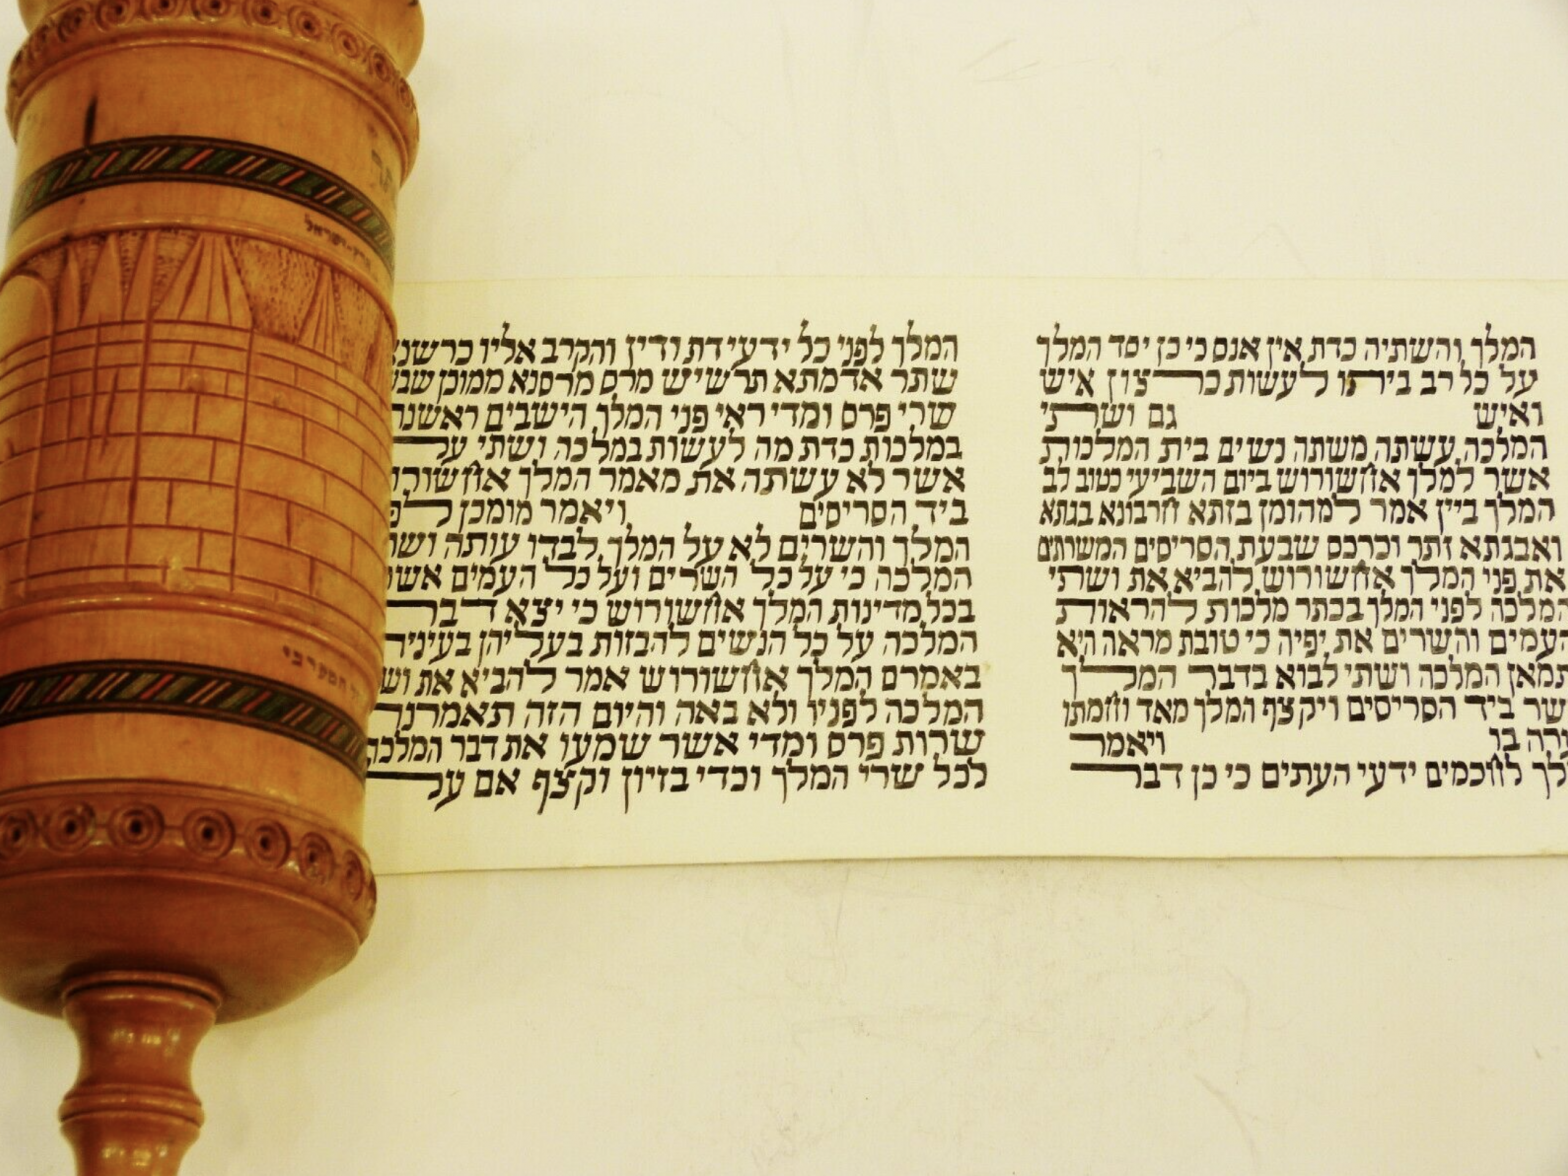 המלך והשתיה כדת אין אנס כי כן יסד המלך
על כל רב ביתו לעשות כרצון איש
ואיש גם ושתי
המלכה עשתה משתה נשים בית המלכות
אשר למלך אחשורוש ביום השביעי כטוב לב
המלך ביין אמר למהומן בזתא חרבונא בגתא
ואבגתא זתר וכרכס שבעת הסריסים המשרתים
את פני המלך אחשורוש להביא את ושתי
המלכה לפני המלך בכתר מלכות להראות
העמים והשרים את יפיה כי טובת מראה היא
תמאן המלכה ושתי לבוא בדבר המלך
שר ביד הסריסים ויקצף המלך מאד וחמתו
בו ויאמר
לך לחכמים ידעי העתים כי כן דבר
המלך לפני כל ידעי דת ודין והקרב אליו כרשנא
שתר אדמתא תרשיש מרס מרסנא ממוכן
שרי פרס ומדי ראי פני המלך הישבים ראשנה
במלכות כדת מה לעשות במלכה ושתי על
אשר לא עשתה את מאמר המלך אחשורוש
ביד הסריסים ויאמר מומכן
המלך והשרים לא על המלך לבדו עותה
המלכה כי על כל השרים ועל כל העמים אשר
בכל מדינות המלך אחשורוש כי יצא דבר
המלכה על כל הנשים להבזות בעליהן
באמרם המלך אחשורוש אמר להביא את
המלכה לפניו ולא באה והיום הזה תאמרנה
שרות פרס ומדי אשר שמעו את דבר המלכה
לכל שרי המלך וכדי בזיון וקצף אם על
ישראל
המערבי